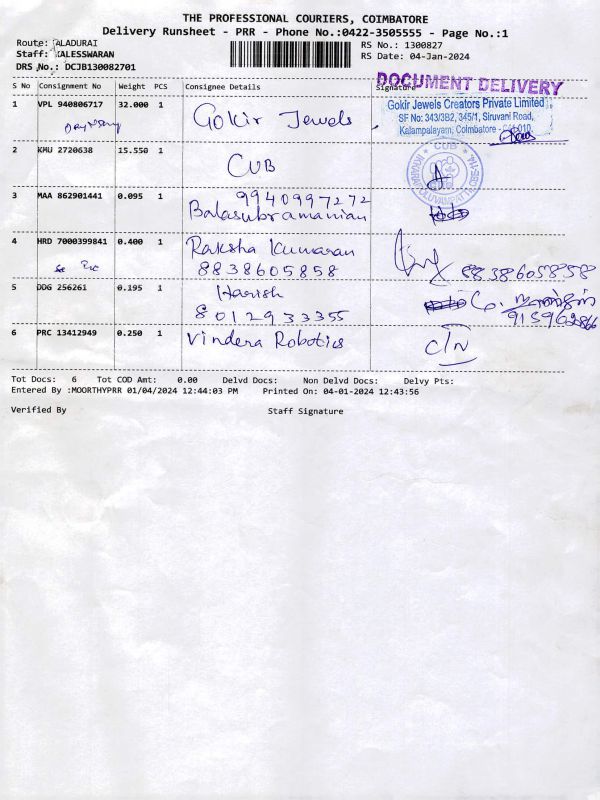 THE PROFESSIONAL COURIERS, COIMBATORE
Delivery Runsheet - PRR - Phone No.:0422-3505555 - Page No.:1
Route: ALADURAI
Staff: KALESSWARAN
DRS No.: DCJB130082701
RS No.: 1300827
RS Date: 04-Jan-2024
S No Consignment No Weight PCS Consignee Details Signature
DOCUMENT DELIVERY
Gokir Jewels Creators Private Limited
SF No: 343/3B2, 345/1, Siruvani Road,
Kalampalayam, Coimbatore - 641 010
1 VPL 940806717 32.000 1 Gokir Jewels
2 KMU 2720638 15.550 1 CUB
CUB
3 MAA 862901441 0.095 1 9940997272
Balasubramanian
4 HRD 7000399841 0.400 1 Raksha Kumaran
8838605858 8838605858
5 DDG 256261 0.195 1 Harish
8012933355
6 PRC 13412949 0.250 1 Vindera Robotics
Tot Docs: 6 Tot COD Amt: 0.00 Delvd Docs: Non Delvd Docs: Delvy Pts:
Entered By :MOORTHYPRR 01/04/2024 12:44:03 PM Printed On: 04-01-2024 12:43:56
Verified By Staff Signature